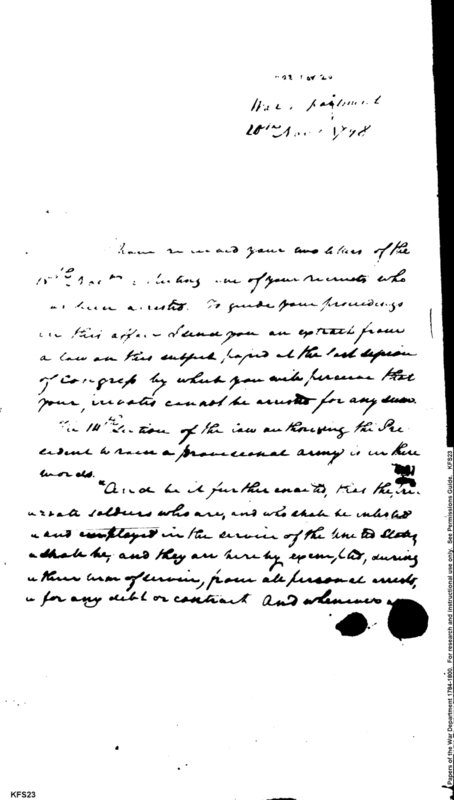 War Department
20th Nov. 1798
have received your two letters of the
15th respecting one of your recruits who
has been arrested. To guide your proceedings
in this affair I send you an extract from
a law on this subject, passed at the last session
of Congress by which you will perceive that
your privates cannot be arrested for any sum.
The 14th Section of the law authorising the Pre
sident to raise a provisional army is in these
words.
"And be it further enacted, that the pri
" vate soldiers who are, and who shall be enlisted
" and employed in the service of the United States
" shall be, and they are hereby exempted, during
" their term of service, from all personal arrests,
" for any debt or contract And whenever
Papers of the War Department 1784-1800. For research and instructional use only. See Permissions Guide. KFS23
KFS23